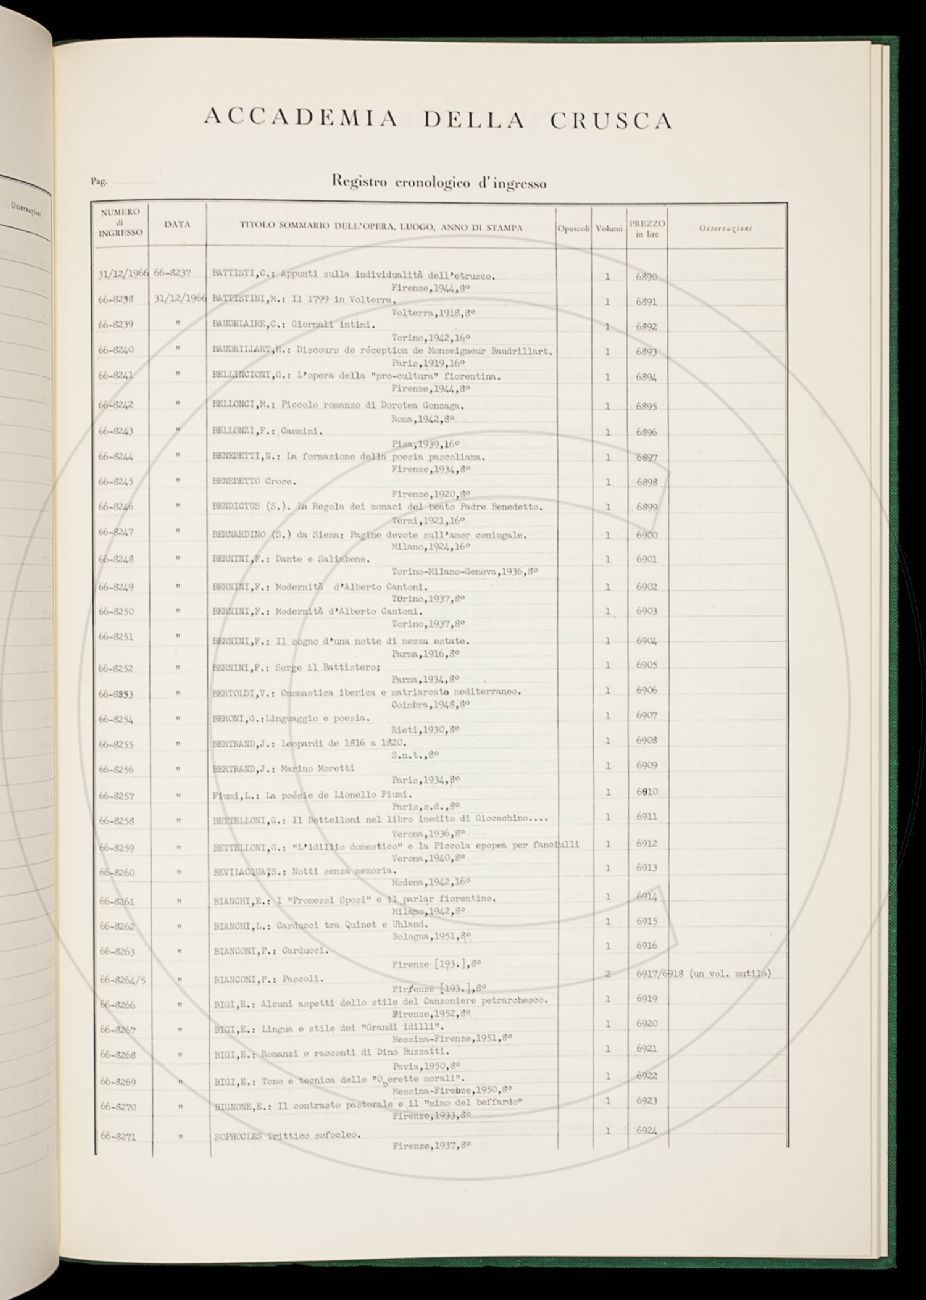 Osservazioni
ACCADEMIA DELLA CRUSCA
Pag.
Registro cronologico d'ingresso
NUMERO di INGRESSO DATA TITOLO SOMMARIO DELL'OPERA, LUOGO, ANNO DI STAMPA Opuscoli Volumi PREZZO in lire Osservazioni
31/12/1966 66-8237 BATTISTI,C.: Appunti sulla individualità dell'etrusco. 1 6890
Firenze,1944,8º
66-8238 31/12/1966 BATTISTINI,M.: Il 1799 in Volterra. 1 6891
Volterra,1918,8º
66-8239 " BAUDELAIRE,C.: Giornali intimi. 1 6892
Torino,1942,16º
66-8240 " BAUDRILLART,H.: Discours de réception de Monseigneur Baudrillart. 1 6893
Paris,1919,16º
66-8241 " BELLINCIONI,G.: L'opera della "pro-cultura" fiorentina. 1 6894
Firenze,1944,8º
66-8242 " BELLONCI,M.: Piccolo romanzo di Dorotea Gonzaga. 1 6895
Roma,1942,8º
66-8243 " BELLONZI,F.: Cammini. 1 6896
Pisa,1939,16º
66-8244 " BENEDETTI,N.: La formazione della poesia pascoliana. 1 6897
Firenze,1934,8º
66-8245 " BENEDETTO Croce. 1 6898
Firenze,1920,8º
66-8246 " BENDICTUS (S.). La Regola dei monaci del beato Padre Benedetto. 1 6899
Terni,1921,16º
66-8247 " BERNARDINO (S.) da Siena: Pagine devote sull'amor coniugale. 1 6900
Milano,1924,16º
66-8248 " BERNINI,F.: Dante e Salimbene. 1 6901
Torino-Milano-Genova,1936,8º
66-8249 " BERNINI,F.: Modernità d'Alberto Cantoni. 1 6902
Torino,1937,8º
66-8250 " BERNINI,F.: Modernità d'Alberto Cantoni. 1 6903
Torino,1937,8º
66-8251 " BERNINI,F.: Il sogno d'una notte di mezza estate. 1 6904
Parma,1916,8º
66-8252 " BERNINI,F.: Sorge il Battistero; 1 6905
Parma,1934,8º
66-8253 " BERTOLDI,V.: Onomastica iberica e matriarcato mediterraneo. 1 6906
Coimbra,1948,8º
66-8254 " BERONI,G.:Linguaggio e poesia. 1 6907
Rieti,1930,8º
66-8255 " BERTRAND,J.: Leopardi de 1816 a 1820. 1 6908
S.n.t.,8º
66-8256 " BERTRAND,J.: Marino Moretti 1 6909
Paris,1934,8º
66-8257 " Fiumi,L.: La poésie de Lionello Fiumi. 1 6910
Paris,s.d.,8º
66-8258 " BETTELLONI,G.: Il Bettelloni nel libro inedito di Giocachino.... 1 6911
Verona,1936,8º
66-8259 " BETTELLONI,G.: "L'idillio domestico" e la Piccola epopea per fanciulli 1 6912
Verona,1940,8º
66-8260 " BEVILACQUA,S.: Notti senza memoria. 1 6913
Modena,1942,16º
66-8261 " BIANCHI,E.: I "Promessi Sposi" e il parlar fiorentino. 1 6914
Milano,1942,8º
66-8262 " BIANCHI,L.: Carducci tra Quinet e Uhland. 1 6915
Bologna,1951,8º
66-8263 " BIANCONI,P.: Carducci. 1 6916
Firenze [193.],8º
66-8264/5 " BIANCONI,P.: Pascoli. 2 6917/6918 (un vol. mutilo)
Firfenze [193.],8º
66-8266 " BIGI,E.: Alcuni aspetti dello stile del Canzoniere petrarchesco. 1 6919
Firenze,1952,8º
66-8267 " BIGI,E.: Lingua e stile dei "Grandi idilli". 1 6920
Messina-Firenze,1951,8º
66-8268 " BIGI,E.: Romanzi e racconti di Dino Buzzatti. 1 6921
Pavia,1950,8º
66-8269 " BIGI,E.: Tono e tecnica delle "Operette morali". 1 6922
Messina-Firenze,1950,8º
66-8270 " BIGNONE,E.: Il contrasto pastorale e il "mimo del beffardo" 1 6923
Firenze,1933,8º
66-8271 " SOPHOCLES Trittico sofocleo. 1 6924
Firenze,1937,8º